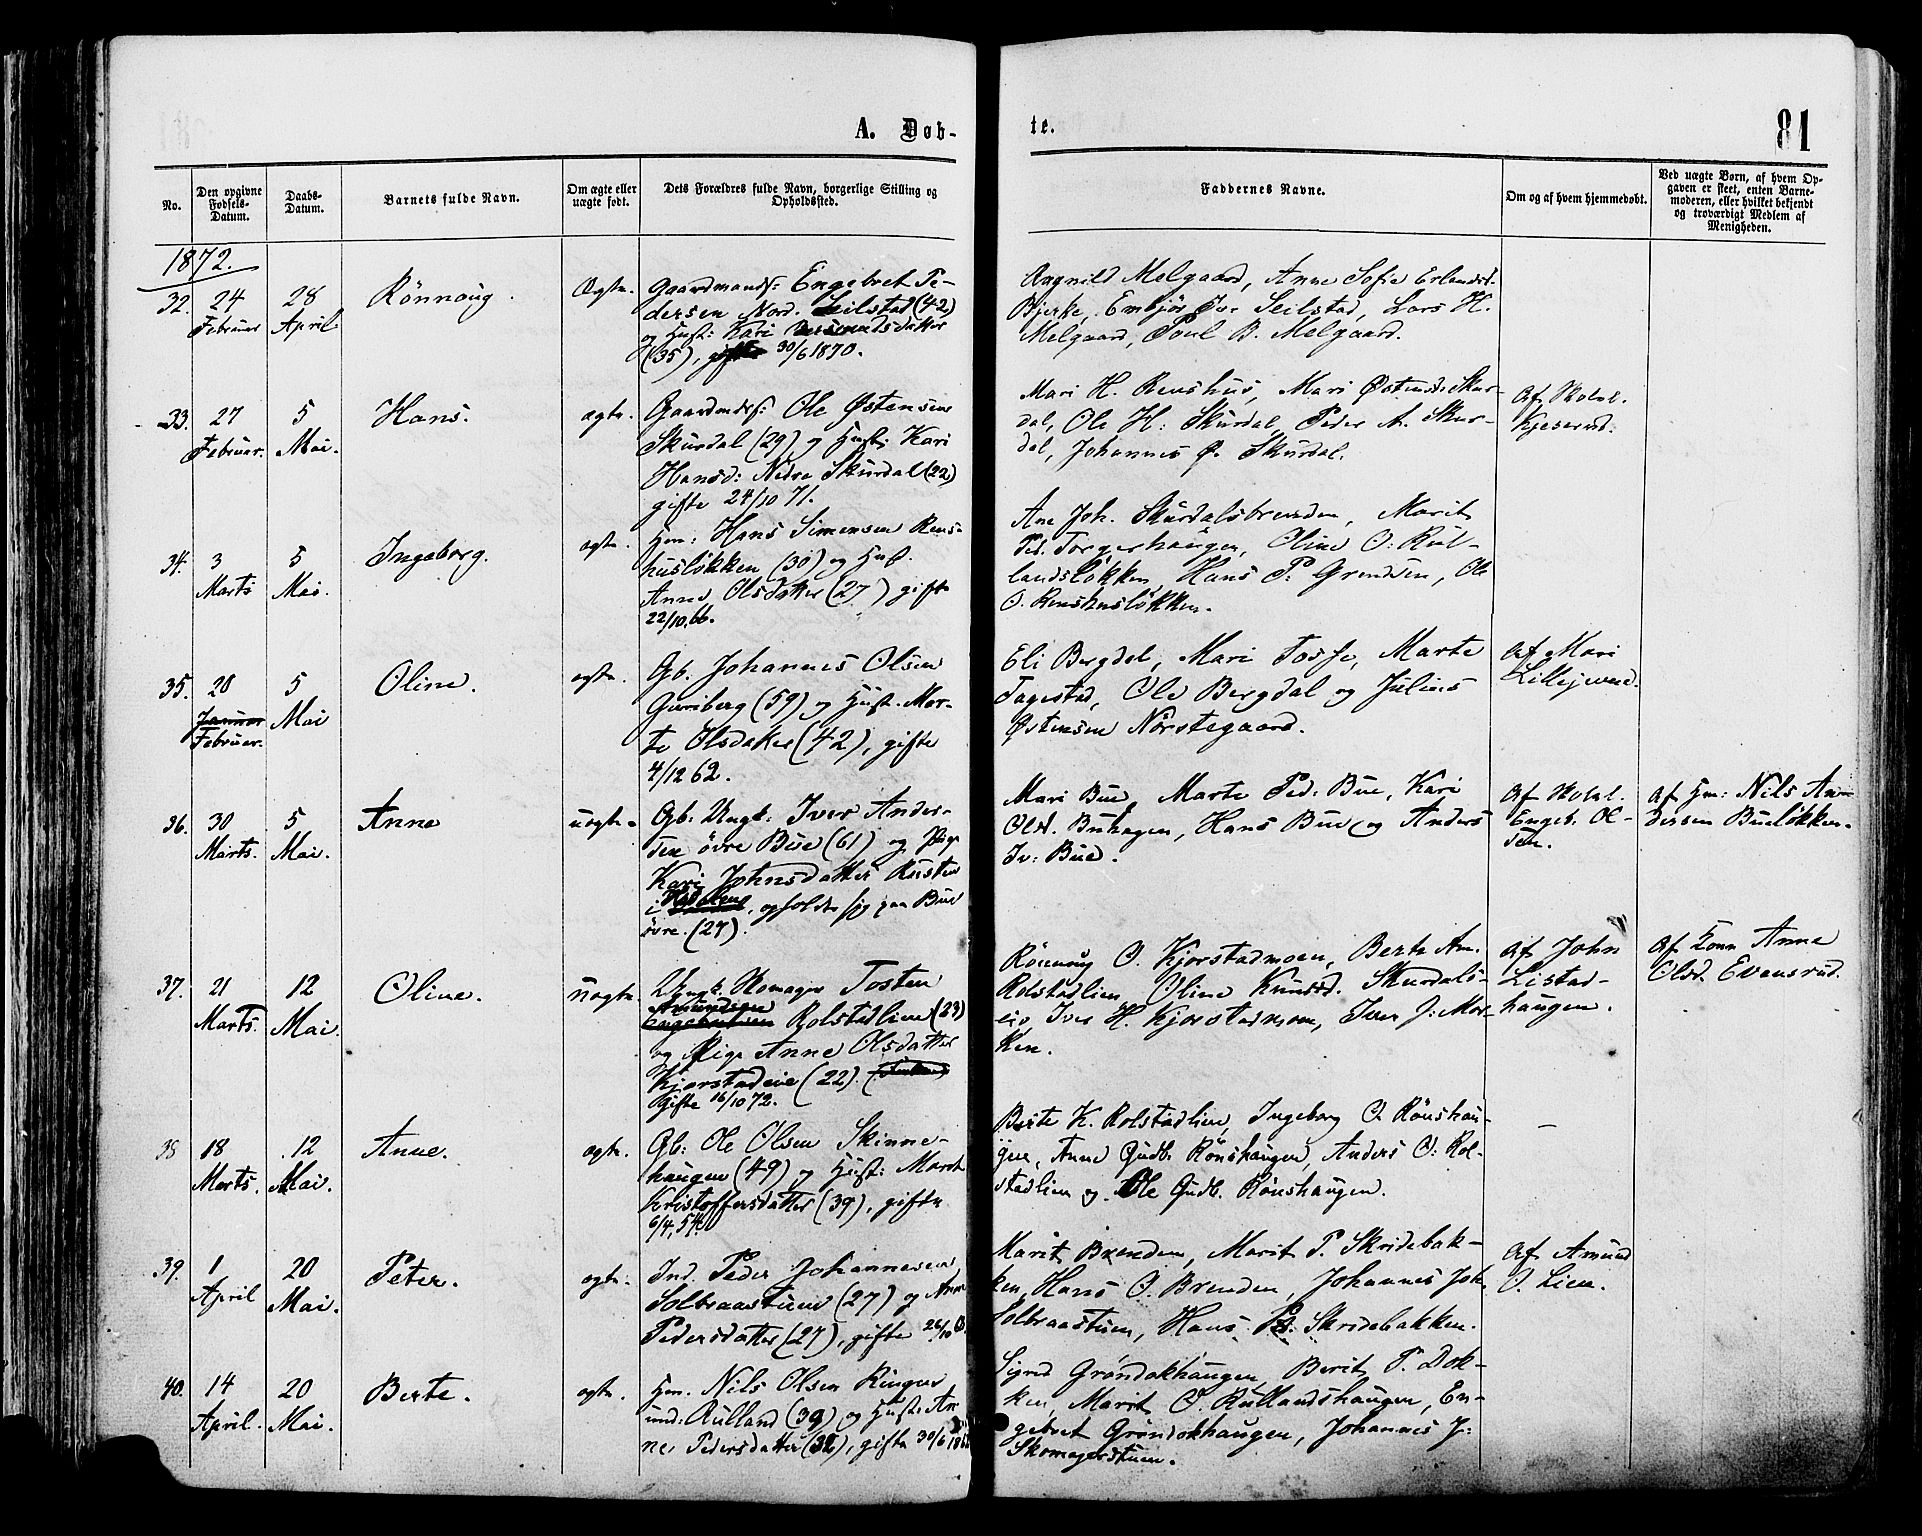 A. Døb-
te.
81
No.
Den opgivne
Fødsels-
Datum.
Daabs-
Datum.
Barnets fulde Navn.
Om ægte eller
uægte født.
Dets Forældres fulde Navn, borgerlige Stilling og
Opholdssted.
Faddernes Navne.
Om og af hvem hjemmedøbt.
Ved uægte Børn, af hvem Op-
gaven er skeet, enten Barne-
moderen, eller hvilket bekjendt
og troværdigt Medlem af
Menigheden.
1872.
32. 24 Februar
28 April
Rönnoug.
Ægte.
Gaardmands: Engebret Pe-
dersen Nord. Seilstad (42)
og Hust: Kari
(35), gifte 30/6 1870.
Ragnild Melgaard, Anne Sofie Erlandsd.
Bjerke, Embjör Iv. Seilstad, Lars H.
Melgaard, Poul B. Melgaard.
33. 27 Februar.
5 Mai.
Hans.
ægte.
Gaardmds: Ole Østensen
Skurdal (29) og Hust: Kari
Hansd: Nedre Skurdal (22)
gifte 24/10 71.
Mari H. Renshus, Mari Østensd: Skur-
dal, Ole H: Skurdal, Peder A. Skur-
dal, Johannes Ø. Skurdal.
Af Skolel.
Kjeserud.
34. 3 Marts
5 Mai.
Ingeborg.
ægte.
Hm: Hans Simensen Rens-
huslökken (30) og Hust.
Anne Olsdatter (27) gifte
22/10.66.
Ane Joh. Skurdalsbrenden, Marit
Ped. Torgerhaugen, Oline O: Rul-
landslökken, Hans P. Grendsen, Ole
O. Renshuslökken.
35. 20 Januar Februar.
5 Mai
Oline.
ægte.
Gb. Johannes Olsen
Guriberg (59) og Hust. Mar-
te Olsdatter (42), gifte
4/12 62.
Eli Bergdal, Mari Tosse, Marte
Tagestad, Ole Bergdal og Julius
Østensen Nörstegaard.
Af Mari
36. 30 Marts.
5 Mai.
Anne
uægte.
Gb. Ungk: Iver Ander-
sen övre Bue (61) og Pige
Kari Johnsdatter Rusten
i opholder sig paa Bue
övre. (27).
Mari Bue, Marte Ped. Bue, Kari
Olsd. Buhagen, Hans Bue og Anders
Iv: Bue.
Af Skolel.
Engeb. Ol-
sen.
Af Hm: Nils An-
dersen Buelökken.
37. 21 Marts.
12 Mai.
Oline.
uægte.
Ungk. Skomager Tosten
Amundsen
Engebretsen Rolstadlien (23)
og Pige Anne Olsdatter
Kjorstadeie (22).
Gifte 16/10 72.
Rönnaug O. Kjorstadmoen, Berte Am.
Rolstadlien, Oline Knudsd. Skurdals-
eie, Iver H. Kjorstadmoen, Iver J: Mor-
ken.
Af John
Listad-
haugen.
Af Konn Anne
Olsd. Evensrud.
38 18 Marts.
12 Mai.
Anne.
ægte.
Gb: Ole Olsen Skinne-
haugen (49) og Hust: Marit
Kristoffersdatter (39), gifte
6/4, 54.
Berte K. Rolstadlien, Ingeborg O. Rönshau-
gen, Anne Gudb. Rönshaugen, Anders O: Rol-
stadlien og Ole Gudb. Rönshaugen.
–
39. 1 April
20 Mai.
Peter.
ægte.
Ind. Peder Johannesen
Solbraastuen (27) og Anne
Pedersdatter (27), gifte 26/10
Marit Brenden, Marit P. Skridebak-
ken, Hans O. Brenden, Johannes Joh.
Solbraastuen, Hans Skridebakken.
Af Amund
O. Lien.
40. 14 April.
20 Mai.
Berte.
ægte.
Hm. Nils Olsen Ringen
und: Rulland (39) og Hust: An-
ne Pedersdatter (32), gifte 30/6
Sigrid Gröndokhaugen, Berit P. Dok-
ken, Marit O. Rullandshaugen, En-
gebret Gröndokhaugen, Johannes J:
Skomagerstuen.